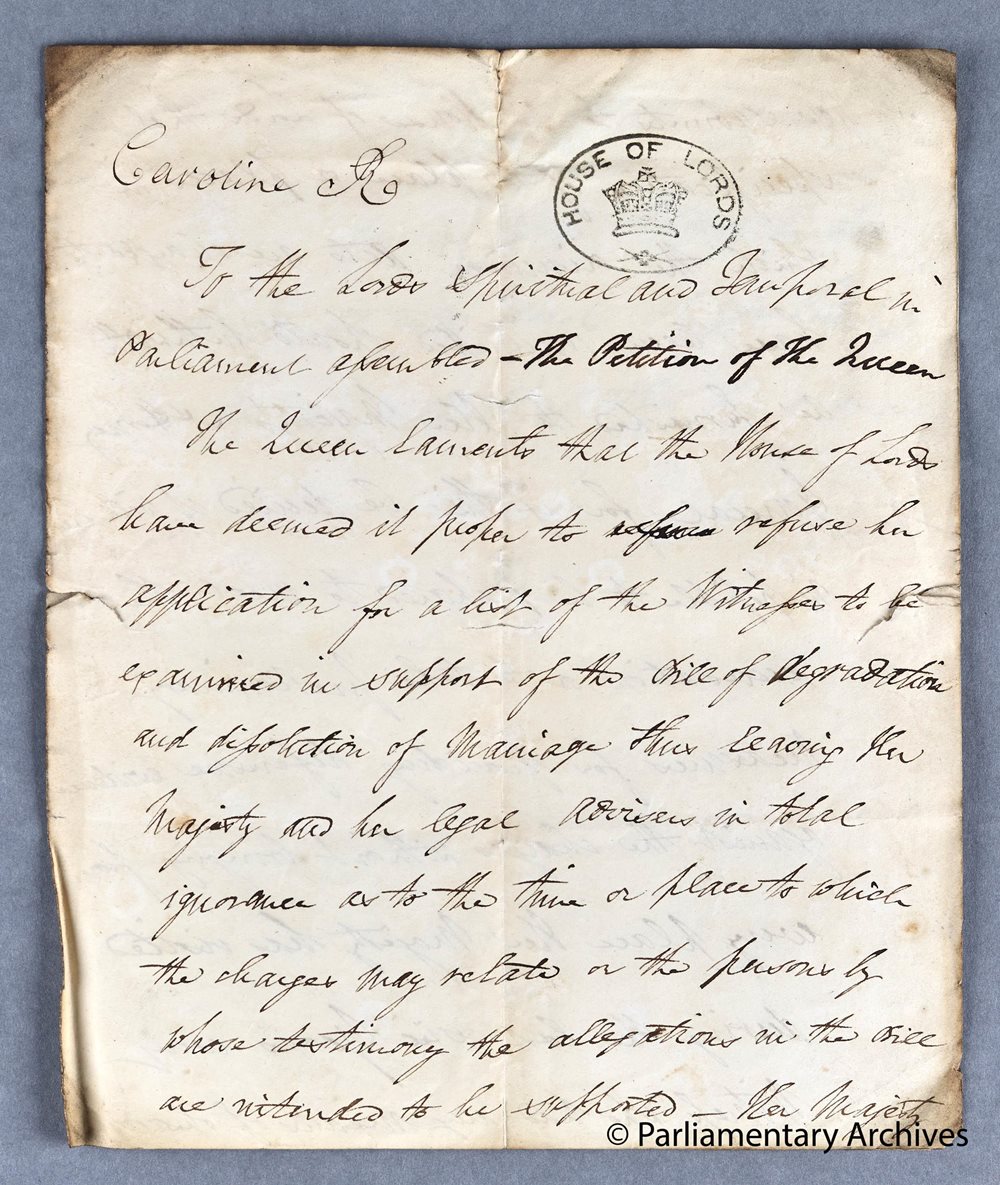 Caroline R
HOUSE OF LORDS
To the Lords Spiritual and Temporal in
Parliament assembled - The Petition of the Queen
The Queen laments that the House of Lords
have deemed it proper to refuse her
application for a list of the Witnesses to be
examined in support of the Bill of degradation
and dissolution of Marriage thus leaving Her
Majesty and her legal advisers in total
ignorance as to the time or place to which
the charges may relate or the persons by
whose testimony the allegations in the Bill
are intended to be supported - Her Majesty
© Parliamentary Archives